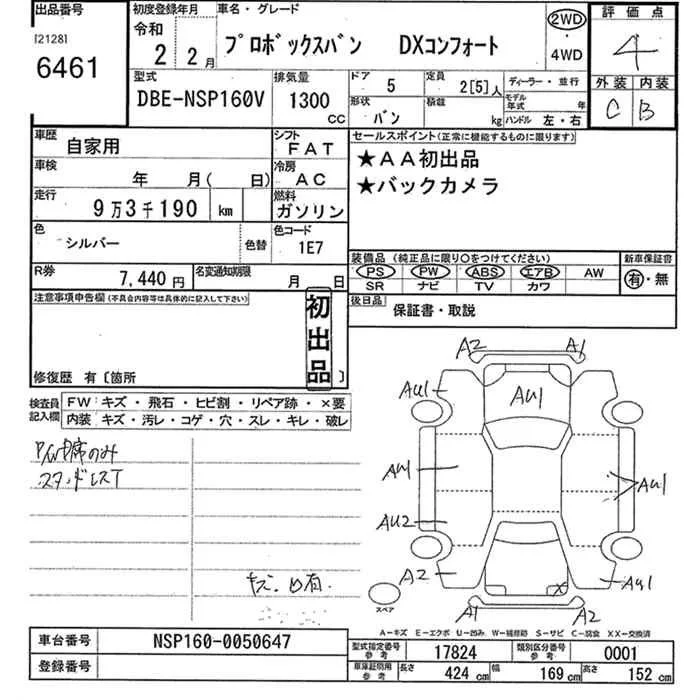 出品番号 初度登録年月 車名・グレード 2WD 評価点
[2128] 令和
6461 2 2月 プロボックスバン DXコンフォート ・4WD 4
型式 排気量 ドア 5 定員 2[5]人 ディーラー・並行 外装 内装
DBE-NSP160V 1300 CC 形状 バン 積載 kg モデル年式 年 ハンドル 左・右 C B
車歴 自家用 シフト FAT セールスポイント(正常に機能するものに限ります)
車検 年 月( 日) 冷房 AC ★AA初出品
走行 9万3千190 km 燃料 ガソリン ★バックカメラ
色 シルバー 色替 色コード 1E7
装備品 (純正品に限り○をつけてください) 新車保証書
R券 7,440円 名変通知期限 月 日 PS PW ABS エアB AW 有・無
SR ナビ TV カワ
注意事項申告欄(不具合内容等は具体的に記入して下さい) 初出品 後日品 保証書・取説
修復歴 有〔箇所 〕
検査員記入欄 FW: キズ・飛石・ヒビ割・リペア跡・×要
内装: キズ・汚レ・コゲ・穴・スレ・キレ・破レ
A2 A1
AU1 AU1
P/W席のみ
スタッドレスT
AU1 AU1
AU2
A2 AU1
スペア
A1 A2
A-キズ E-エクボ U-凹み W-補修跡 S-サビ C-腐食 XX-交換済
車台番号 NSP160-0050647 型式指定番号 参考 17824 類別区分番号 参考 0001
登録番号 車庫証明用 参考 長さ 424 cm 幅 169 cm 高さ 152 cm